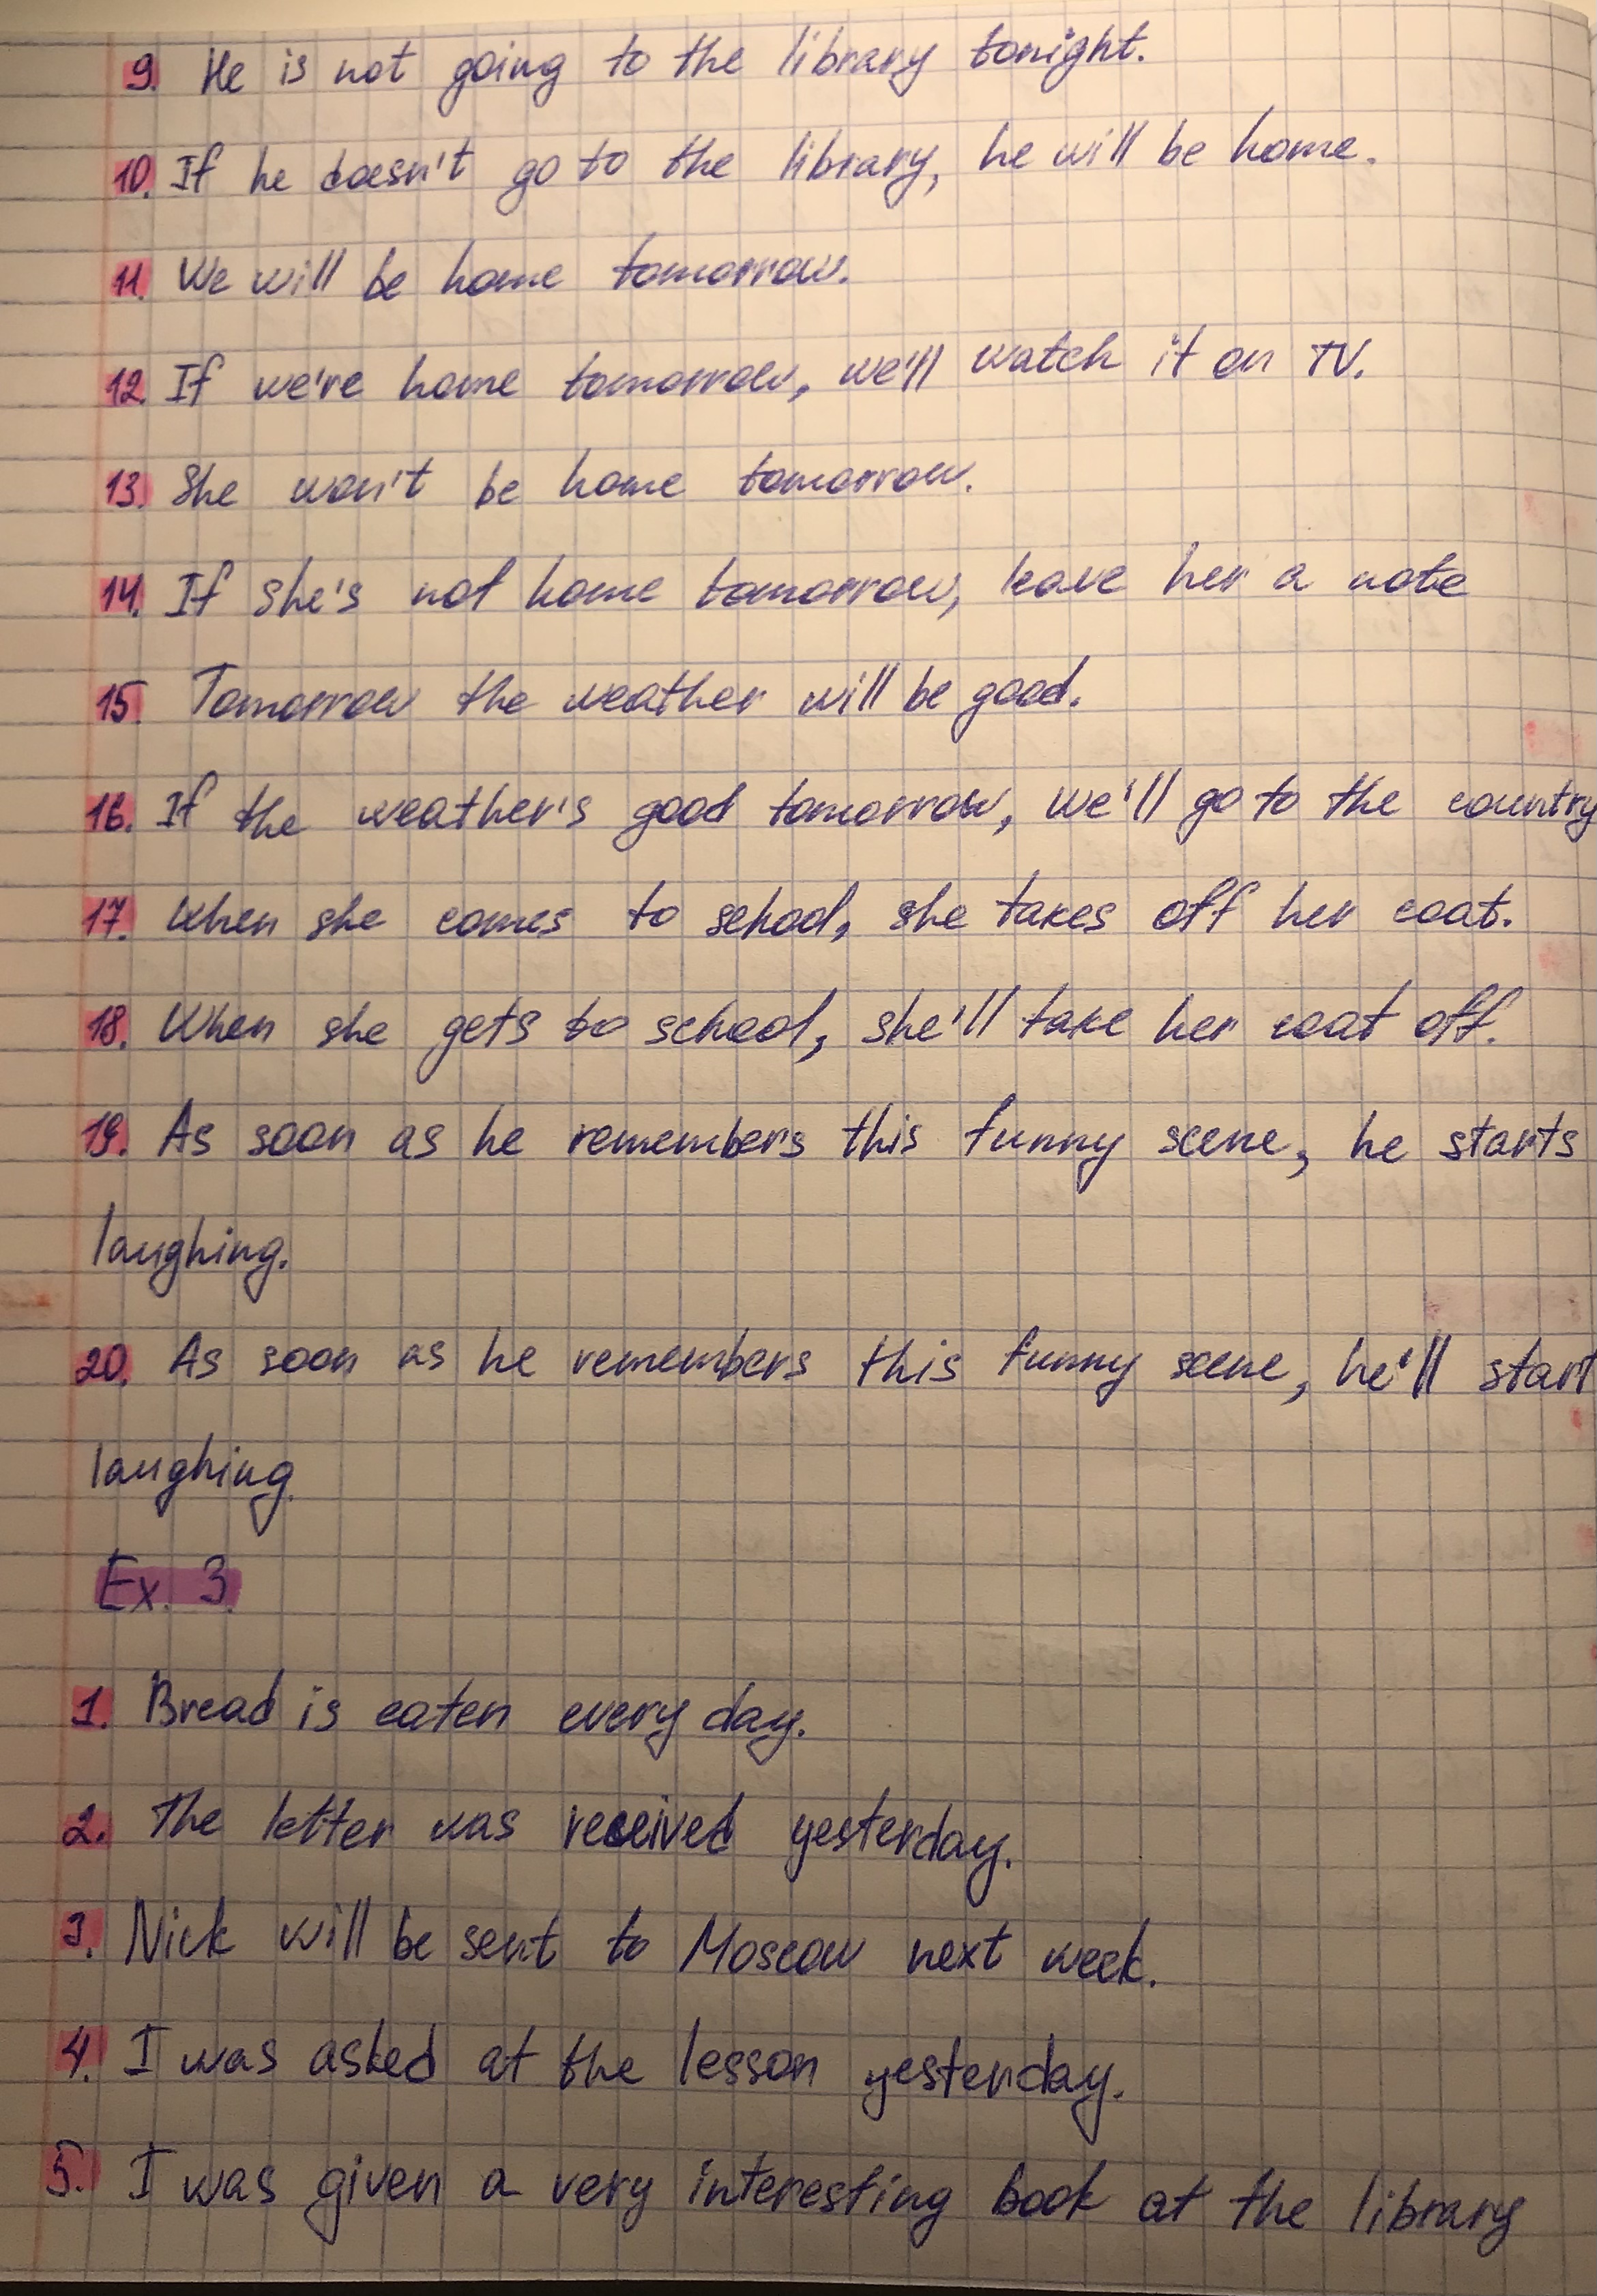 9. He is not going to the library tonight.
10. If he doesn't go to the library, he will be home.
11. We will be home tomorrow.
12. If we're home tomorrow, we'll watch it on TV.
13. She won't be home tomorrow.
14. If she's not home tomorrow, leave her a note
15. Tomorrow the weather will be good.
16. If the weather's good tomorrow, we'll go to the country
17. When she comes to school, she takes off her coat.
18. When she gets to school, she'll take her coat off.
19. As soon as he remembers this funny scene, he starts
laughing.
20. As soon as he remembers this funny scene, he'll start
laughing.
Ex. 3.
1. Bread is eaten every day.
2. The letter was received yesterday.
3. Nick will be sent to Moscow next week.
4. I was asked at the lesson yesterday.
5. I was given a very interesting book at the library